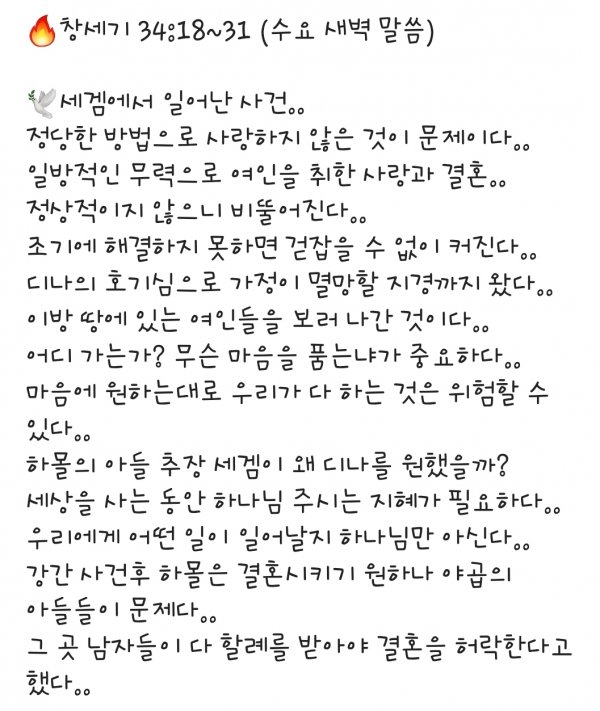 🔥창세기 34:18~31 (수요 새벽 말씀)
🕊세겜에서 일어난 사건..
정당한 방법으로 사랑하지 않은 것이 문제이다..
일방적인 무력으로 여인을 취한 사랑과 결혼..
정상적이지 않으니 비뚤어진다..
조기에 해결하지 못하면 걷잡을 수 없이 커진다..
디나의 호기심으로 가정이 멸망할 지경까지 왔다..
이방 땅에 있는 여인들을 보러 나간 것이다..
어디 가는가? 무슨 마음을 품는냐가 중요하다..
마음에 원하는대로 우리가 다 하는 것은 위험할 수
있다..
하몰의 아들 추장 세겜이 왜 디나를 원했을까?
세상을 사는 동안 하나님 주시는 지혜가 필요하다..
우리에게 어떤 일이 일어날지 하나님만 아신다..
강간 사건후 하몰은 결혼시키기 원하나 야곱의
아들들이 문제다..
그 곳 남자들이 다 할례를 받아야 결혼을 허락한다고
했다..